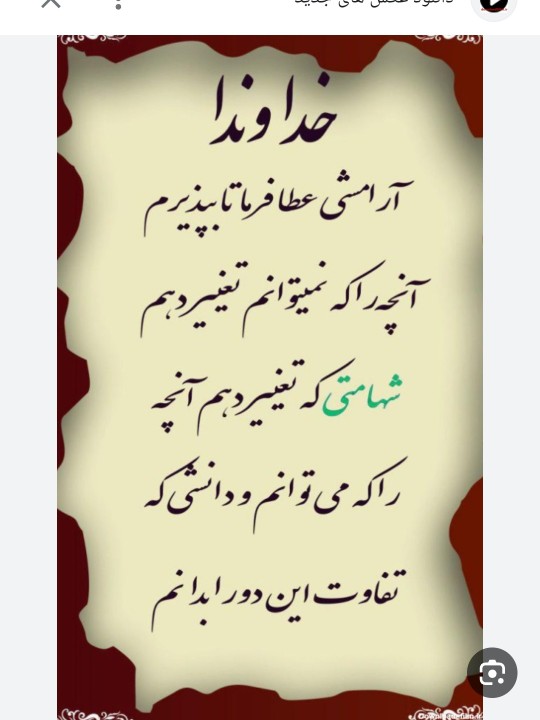 دانلود عکس های جدید
خداوندا
آرامشی عطا فرما تا بپذیرم
آنچه را که نمیتوانم تغییر دهم
شهامتی که تغییر دهم آنچه
را که می توانم و دانشی که
تفاوت این دو را بدانم